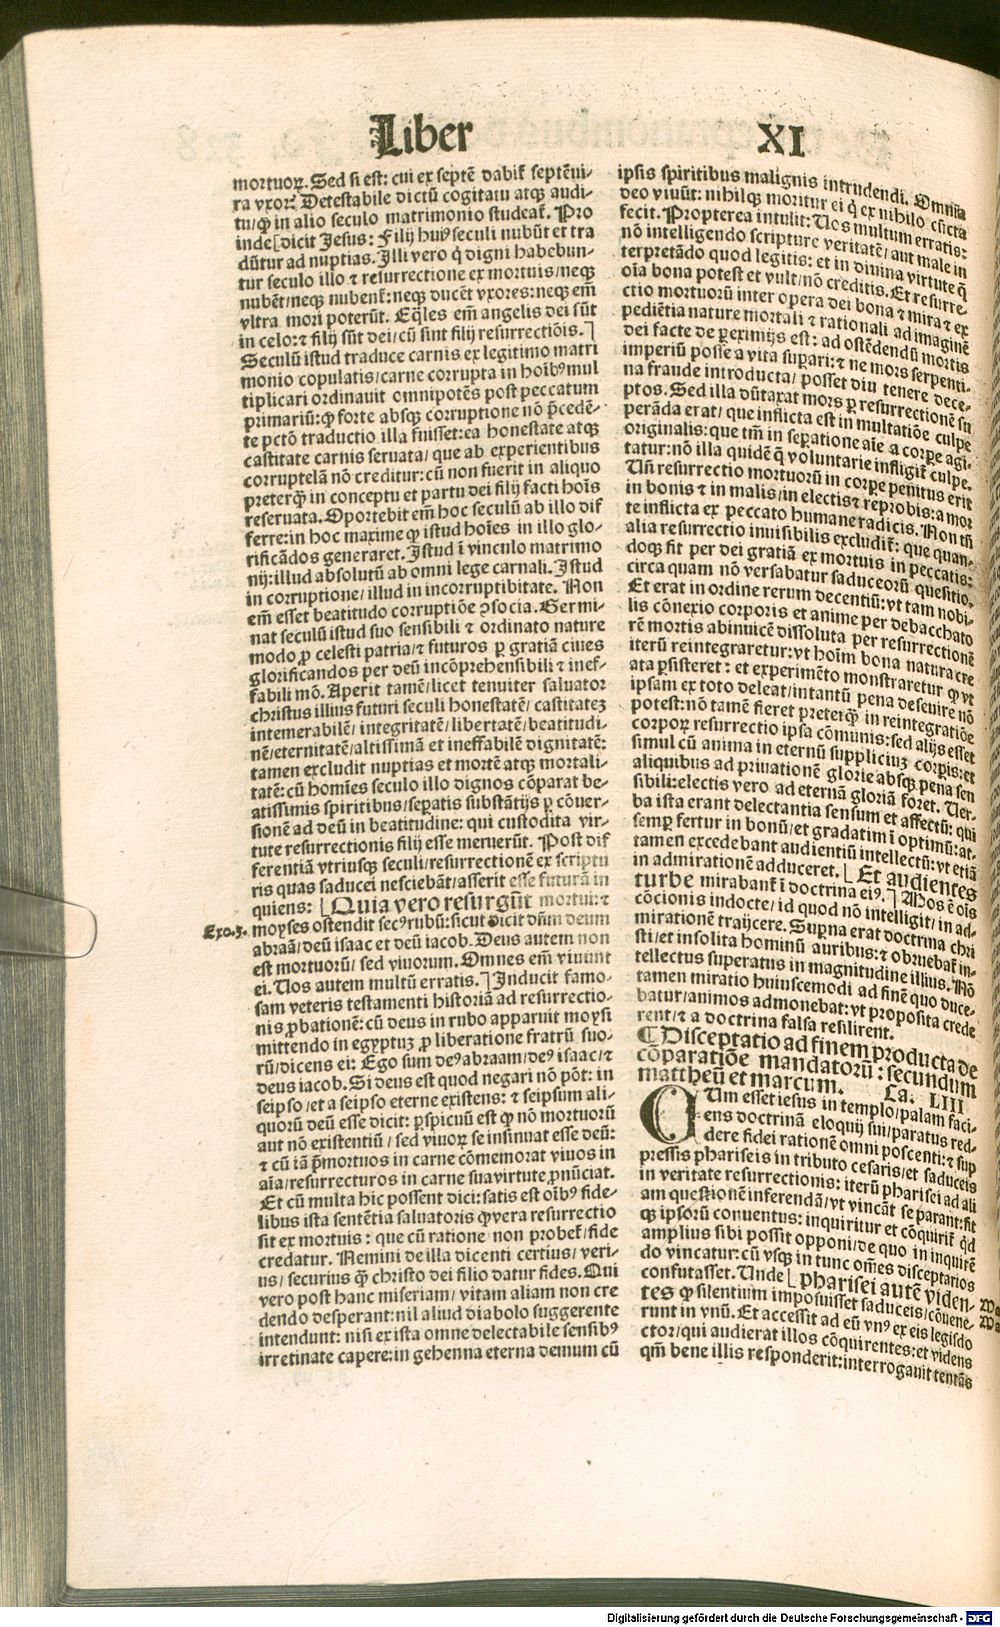 Liber XI
mortuoꝝ. Sed si est: cui ex septē dabiť septēui-
ra vxor? Detestabile dictū cogitatu atqꝫ audi-
tu/ꝙ in alio seculo matrimonio studeať. Pro
inde[dicit Jesus: Filij huiꝰ seculi nubūt et tra
dūtur ad nuptias. Illi vero q̇ digni habebun-
tur seculo illo ⁊ resurrectione ex mortuis/neqꝫ
nubēt/neqꝫ nubenť: neqꝫ ducēt vxores: neqꝫ em̄
vltra mori poterūt. Eq̄les em̄ angelis dei sūt
in celo: ⁊ filij sūt dei/cū sint filij resurrectiōis.]
Seculū istud traduce carnis ex legitimo matri
monio copulatis/carne corrupta in hoībꝰ mul
tiplicari ordinauit omnipotēs post peccatum
primariū: ꝙ forte absqꝫ corruptione nō p̄cedē-
te pctō traductio illa fuisset: ea honestate atqꝫ
castitate carnis seruata/ que ab experientibus
corruptelā nō creditur: cū non fuerit in aliquo
preterq̄ in conceptu et partu dei filij facti hoīs
reseruata. Oportebit em̄ hoc seculū ab illo dif
ferre: in hoc maxime ꝙ istud hoīes in illo glo-
rificādos generaret. Istud ī vinculo matrimo
nij: illud absolutū ab omni lege carnali. Istud
in corruptione/ illud in incorruptibilitate. Non
em̄ esset beatitudo corruptiōe ꝯsocia. Germi-
nat seculū istud suo sensibili ⁊ ordinato nature
modo ꝓ celesti patria/⁊ futuros ꝑ gratiā ciues
glorificandos per deū incōprehensibili ⁊ inef-
fabili mō. Aperit tamē/licet tenuiter saluator
christus illius futuri seculi honestatē/ castitatē
intemerabilē/ integritatē/libertatē/ beatitudi-
nē/eternitatē/altissimā et ineffabilē dignitatē:
tamen excludit nuptias et mortē atqꝫ mortali-
tatē: cū homīes seculo illo dignos cōparat be-
atissimis spiritibus/seꝑatis substātijs ꝑ cōuer-
sionē ad deū in beatitudine: qui custodita vir-
tute resurrectionis filij esse meruerūt. Post dif
ferentiā vtriusqꝫ seculi/resurrectionē ex scriptu
ris quas saducei nesciebāt/asserit esse futurā in
quiens: [Quia vero resurgūt mortui: ⁊
Exo.3. moyses ostendit secꝰ rubū: sicut dicit dn̄m deum
abraā/ deū isaac et deū iacob. Deus autem non
est mortuorū/ sed viuorum. Omnes em̄ viuunt
ei. Uos autem multū erratis.] Inducit famo-
sam veteris testamenti historiā ad resurrectio-
nis ꝓbationē: cū deus in rubo apparuit moysi
mittendo in egyptuꝫ ꝓ liberatione fratrū suo-
rū/dicens ei: Ego sum deꝰ abraam/deꝰ isaac/⁊
deus iacob. Si deus est quod negari nō pōt: in
seipso/et a seipso eterne existens: ⁊ seipsum ali-
quorū deū esse dicit: ꝑspicuū est ꝙ nō mortuorū
aut nō existentiū/ sed viuoꝝ se insinuat esse deū:
⁊ cū iā p̄mortuos in carne cōmemorat viuos in
aīa/resurrecturos in carne sua virtute ꝓnūciat.
Et cū multa hic possent dici: satis est oībꝰ fide-
libus ista sentētia saluatoris ꝙ vera resurrectio
sit ex mortuis: que cū ratione non probeť/fide
credatur. Nemini de illa dicenti certius/ veri-
us/ securius q̄ christo dei filio datur fides. Qui
vero post hanc miseriam/ vitam aliam non cre
dendo desperant: nil aliud diabolo suggerente
intendunt: nisi ex ista omne delectabile sensibꝰ
irretinate capere: in gehenna eterna demum cū
ipsis spiritibus malignis intrudendi. Omnia
deo viuūt: nihilqꝫ moritur ei q̇ ex nihilo cūcta
fecit. Propterea intulit: Uos multum erratis:
nō intelligendo scripture veritatē/ aut male in
terpretādo quod legitis: et in diuina virtute q̇
oīa bona potest et vult/nō creditis. Et resurre-
ctio mortuorū inter opera dei bona ⁊ mira ⁊ ex
pediētia nature mortali ⁊ rationali ad imaginē
dei facte de ꝑeximijs est: ad ostēdendū mortis
imperiū posse a vita suꝑari: ⁊ ne mors serpenti-
na fraude introducta/ posset diu tenere dece-
ptos. Sed illa dūtaxat mors ꝑ resurrectionē su
perāda erat/ que inflicta est in multatiōe culpe
originalis: que tm̄ in seꝑatione aīe a corꝑe agi-
tatur: nō illa quidē q̄ voluntarie infligiť culpe.
Un̄ resurrectio mortuorū in corꝑe penitus erit
in bonis ⁊ in malis/in electis ⁊ reprobis: a mor
te inflicta ex peccato humane radicis. Non tn̄
alia resurrectio inuisibilis excludiť: que quan-
doqꝫ fit per dei gratiā ex mortuis in peccatis:
circa quam nō versabatur saduceorū questio.
Et erat in ordine rerum decentiū: vt tam nobi-
lis cōnexio corporis et anime per debacchato
rē mortis abinuicē dissoluta per resurrectionē
iterū reintegraretur: vt hoīm bona natura cre
ata ꝑsisteret: et experimēto monstraretur ꝙ vt
ipsam ex toto deleat/intantū pena deseuire nō
potest: nō tamē fieret preterq̄ in reintegratiōe
corporꝝ resurrectio ipsa cōmunis: sed alijs esset
simul cū anima in eternū suppliciuꝫ corꝑis: et
aliquibus ad priuationē glorie absqꝫ pena sen
sibili: electis vero ad eternā gloriā foret. Uer-
ba ista erant delectantia sensum et affectū: qui
semꝑ fertur in bonū/et gradatim ī optimū: at-
tamen excedebant audientiū intellectū: vt etiā
in admirationē adduceret. [Et audientes
turbe mirabanť ī doctrina eiꝰ.] Mos ē oīs
cōcionis indocte/ id quod nō intelligit/ in ad-
mirationē traijcere. Suꝑna erat doctrina chri
sti/et insolita hominū auribus: ⁊ obruebať in-
tellectus superatus in magnitudine illius. Nō
tamen miratio huiuscemodi ad finē quo duce-
batur/animos admonebat: vt proposita crede
rent/⁊ a doctrina falsa resilirent.
¶ Disceptatio ad finem producta de
cōparatiōe mandatorū: secundum
mattheū et marcum. Ca. LIII
CUm esset iesus in templo/palam faci-
ens doctrinā eloquij sui/paratus red-
dere fidei rationē omni poscenti: ⁊ sup
pressis phariseis in tributo cesaris/et saduceis
in veritate resurrectionis: iterū pharisei ad ali
am questionē inferendā/vt vincāt se parant: fit
qꝫ ipsorū conuentus: inquiritur et cōquiriť qd
amplius sibi possit opponi/de quo in inquirē
do vincatur: cū vsqꝫ in tunc om̄es disceptarios
confutasset. Unde [pharisei autē viden-
tes ꝙ silentium imposuisset saduceis/cōuene-
runt in vnū. Et accessit ad eū vnꝰ ex eis legisdo
ctor/qui audierat illos cōquirentes: et videns
qm̄ bene illis responderit: interrogauit tentās